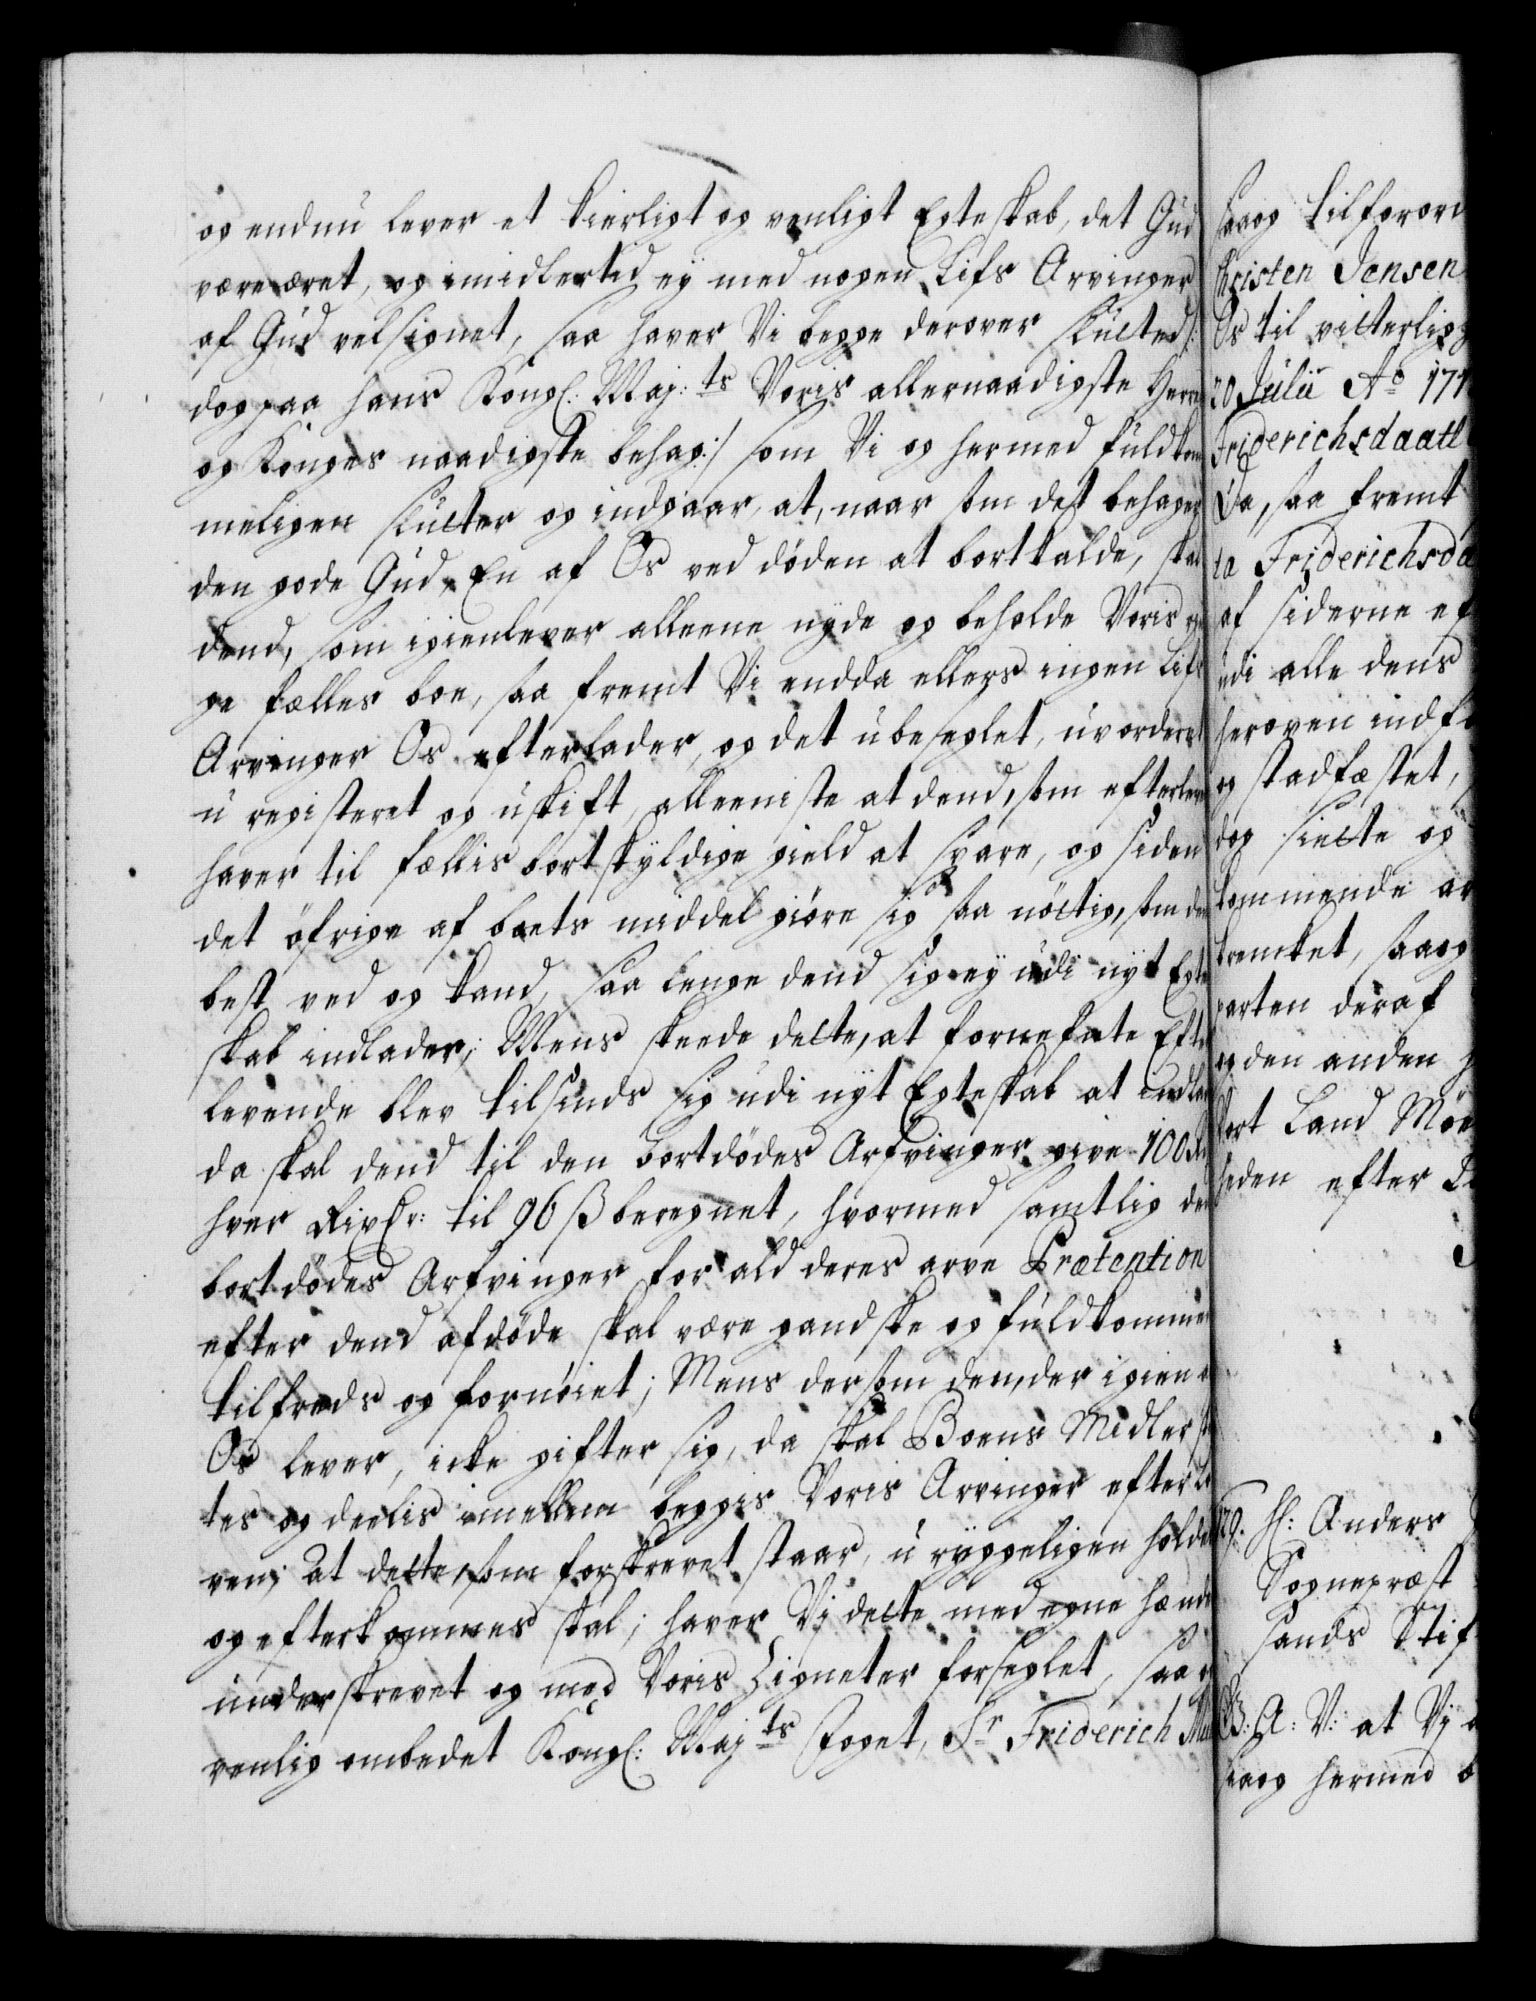 og endnu lever et kierligt og venligt Egteskab, det Gud
være æret, og imidlertid ey med nogen Lifs Arvinger
af Gud velsignet, saa haver Vi begge derover slutted /:
dog paa hans Kongl: Maj:ts Voris allernaadigste Herre
og Konges naadigste behag:/ som Vi og hermed fuldkom
meligen slutter og indgaar, at, naar som det behager
den gode Gud, En af Os ved døden at bortkalde, skal
dend, som igienlever alleene nyde og beholde Voris
ge fælles boe, saa fremt Vi endda ellers ingen Lifs
Arvinger Os efterlader, og det ubeseglet, uvorderet
u registeret og uskift, alleeniste at dend, som efterlever
haver til fællis bortskyldige gield at svare, og siden
det øfrige af boets middel giøre sig saa nøttig, som den
best ved og kand, saa lenge dend sig ey udi nyt Egte
skab indlader; Mens skeede dette, at fornefnte Efter
levende blev tilsinds sig udi nyt Egteskab at indlade
da skal dend til den bortdødes Arfvinger give 100
hver Rixdr: til 96 ß beregnet, hvormed samtlig den
bortdødes Arfvinger for ald deres arve Prætention
efter dend afdøde skal være gandske og fuldkommen
tilfreds og fornøiet; Mens dersom den, der igien
Os lever, icke gifter sig, da skal Boens Midler
tes og deelis imellem begges Voris Arvinger efter Lo
ven; At dette, som forskrevet staar, u ryggeligen holdes
og efterkommes skal; haver Vj dette med egne hænder
underskrevet og med Voris Zigneter forseglet, saa
venlig ombedet Kongl: Majts Foget, Sr Friderich
saaog tilforor
Christen Jensen
Os til vitterlig
20 Julii Ao 17
Friderichsdaatt
Da, saa fremt
ta Friderichsda
af siderne ef
udi alle dens
heroven indf
og stadfæstet,
dog siette og
kommende ar
kremket, saaog
parten deraf
og den anden
vort Land Møe
heden efter
H: Anders
Sognepræst
sands Stif
G: A: V: at Vj
saaog hermed